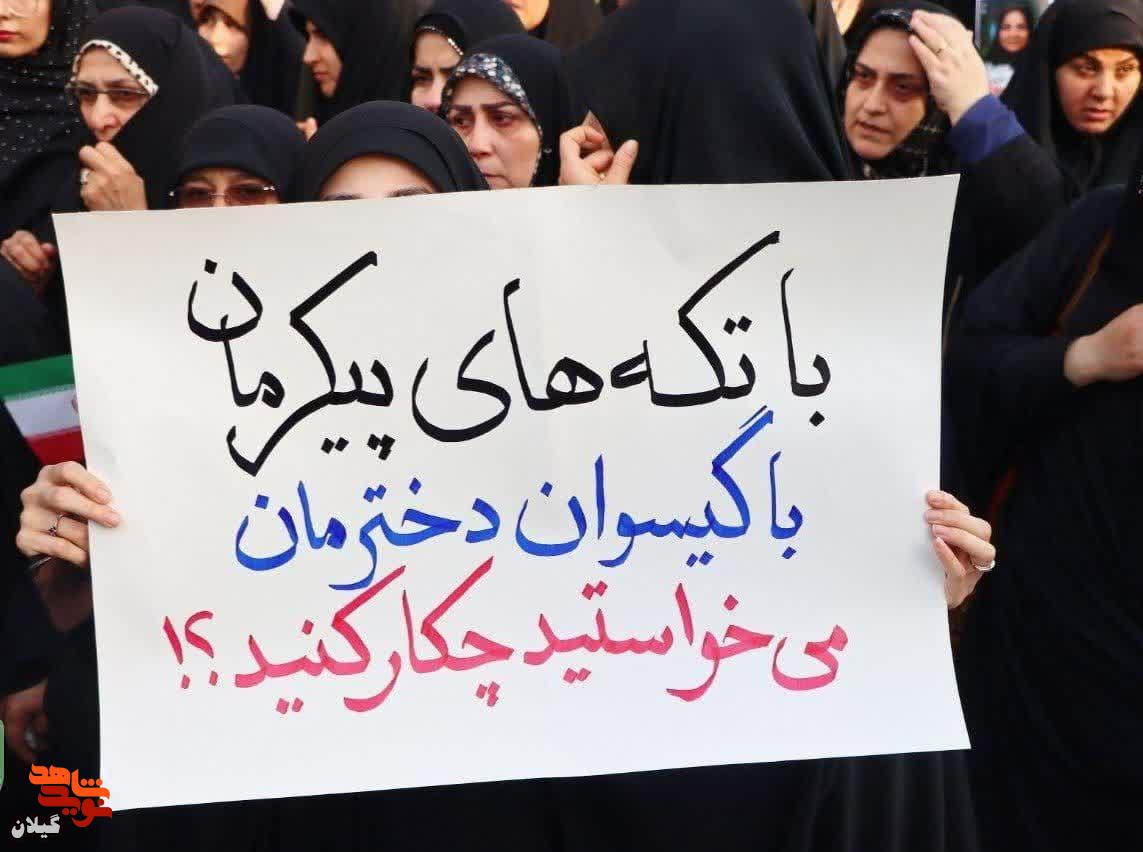 با تکه‌های پیکرمان
با گیسوان دخترمان
می‌خواستید چکار کنید؟!
نوید شاهد
گیلان